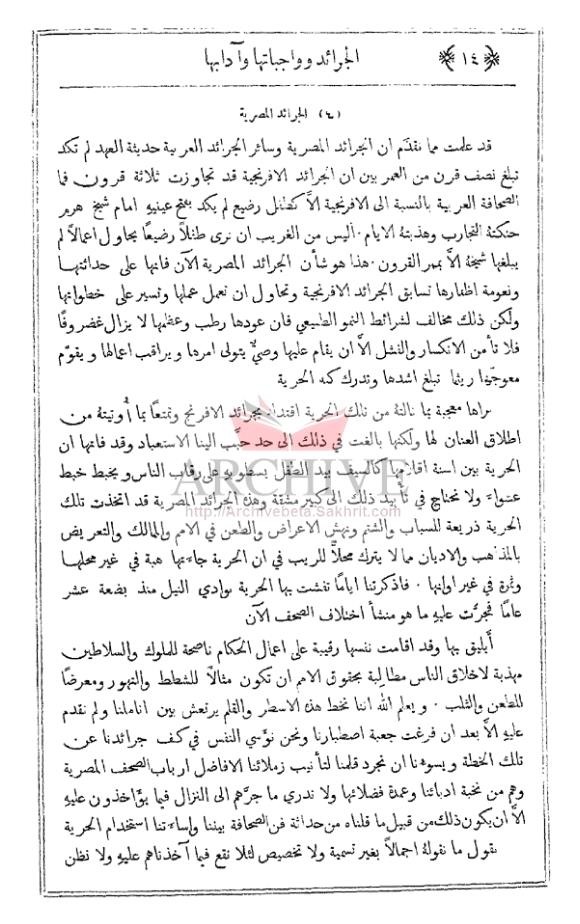 ﴿١٤﴾ الجرائد وواجباتها وآدابها
(٦) الجرائد المصرية
قد علمت مما نقدَّم ان الجرائد المصرية وسائر الجرائد العربية حديثة العهد لم تكد
تبلغ نصف قرن من العمر بين ان الجرائد الافرنجية قد تجاوزت ثلاثة قرون فما
الصحافة العربية بالنسبة الى الافرنجية الَّا كطفل رضيع لم يكد يفتح عينيهِ امام شيخ هرم
حنكتهُ التجارب وهذبتهُ الايام. أليس من الغريب ان نرى طفلاً رضيعًا يحاول اعمالاً لم
يبلغها شيخهُ الَّا بممر القرون. هذا هو شأن الجرائد المصرية الآن فانها على حداثتها
ونعومة اظفارها تسابق الجرائد الافرنجية وتحاول ان تعمل عملها وتسير على خطواتها
ولكن ذلك مخالف لشرائط النمو الطبيعي فان عودها رطب وعظمها لا يزال غضروفًا
فلا تأمن الانكسار والفشل الَّا ان يقام عليها وصيٌّ يتولى امرها و يراقب اعمالها و يقوّم
معوجّها ريثما تبلغ اشدها وتدرك كنه الحرية
نراها معجبة بما نالتهُ من تلك الحرية اقتداء بجرائد الافرنج وتمتعًا بما أوتيتهُ من
اطلاق العنان لها ولكنها بالغت في ذلك الى حد حبَّب الينا الاستعباد وقد فاتها ان
الحرية بين اسنة اقلامها كالسيف بيد الطفل يسطو بهِ على رقاب الناس و يخبط خبط
عشواء ولا نحتاج في تأييد ذلك الى كبير مشقة وهذه الجرائد المصرية قد اتخذت تلك
الحرية ذريعة للسباب والشتم ونهش الاعراض والطعن في الامم والممالك والتعريض
بالمذهب والاديان مما لا يترك محلاًّ للريب في ان الحرية جاءتها هبة في غير محلها
وثمرة في غير اوانها. فاذكرتنا ايامًا تفشت بها الحرية بوادي النيل منذ بضعة عشر
عامًا فجرَّت عليهِ ما هو منشأ اختلاف الصحف الآن
أيليق بها وقد اقامت نفسها رقيبة على اعمال الحكام ناصحة للملوك والسلاطين
مهذبة لاخلاق الناس مطالبة بحقوق الامم ان تكون مثالاً للشطط والتهور ومعرضًا
للطعن والثلب. و يعلم الله اننا نخط هذه الاسطر والقلم يرتعش بين اناملنا ولم نقدم
عليهِ الَّا بعد ان فرغت جعبة اصطبارنا ونحن نؤسي النفس في كف جرائدنا عن
تلك الخطة و يسوءنا ان نجرد قلمنا لتأنيب زملائنا الافاضل ارباب الصحف المصرية
وهم من نخبة ادبائنا وعمدة فضلائها ولا ندري ما جرَّهم الى النزال فيما يؤاخذون عليهِ
الَّا ان يكون ذلك من قبيل ما قلناه من حداثة فن الصحافة بيننا واساءتنا استخدام الحرية
نقول ما نقولهُ اجمالاً بغير تسمية ولا تخصيص لئلا نقع فيما آخذناهم عليهِ ولا نظن
ARCHIVE
http://Archivebeta.Sakhrit.com